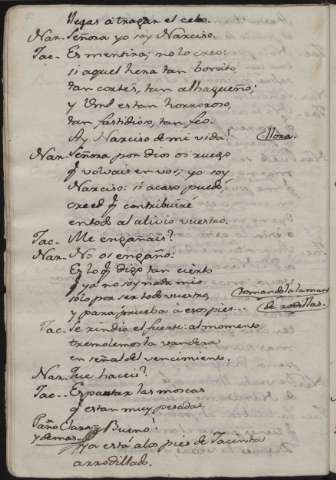 llegas a tragar el cebo.
Nar. Señora yo soy Narciso.
Jac. Es mentira; no lo creo:
si aquel hera tan bonito,
tan cortés, tan alhagueño;
y Vmd es tan horroroso,
tan fastidioso, tan feo.
Ay Narciso de mi vida! Llora.
Nar. Señora por dios os ruego
q volvais en vos; yo soy
Narciso: si acaso puedo,
creed q contribuiré
en todo al alivio vuestro.
Jac. Me engañais?
Nar. No os engaño:
Es lo q digo tan cierto
q ya no soy nada mio
solo por ser todo vuestro,
y para prueba a esos pies... tomandola la mano
de rodillas.
Jac. Se rindio el fuerte: al momento
tremolemos la vandera
en señal del vencimiento.
Nar. Que haceis?
Jac. Espantar las moscas
q estan muy pesadas
y demas Bueno!
Ya está a los pies de Jacinta
arrodillado.